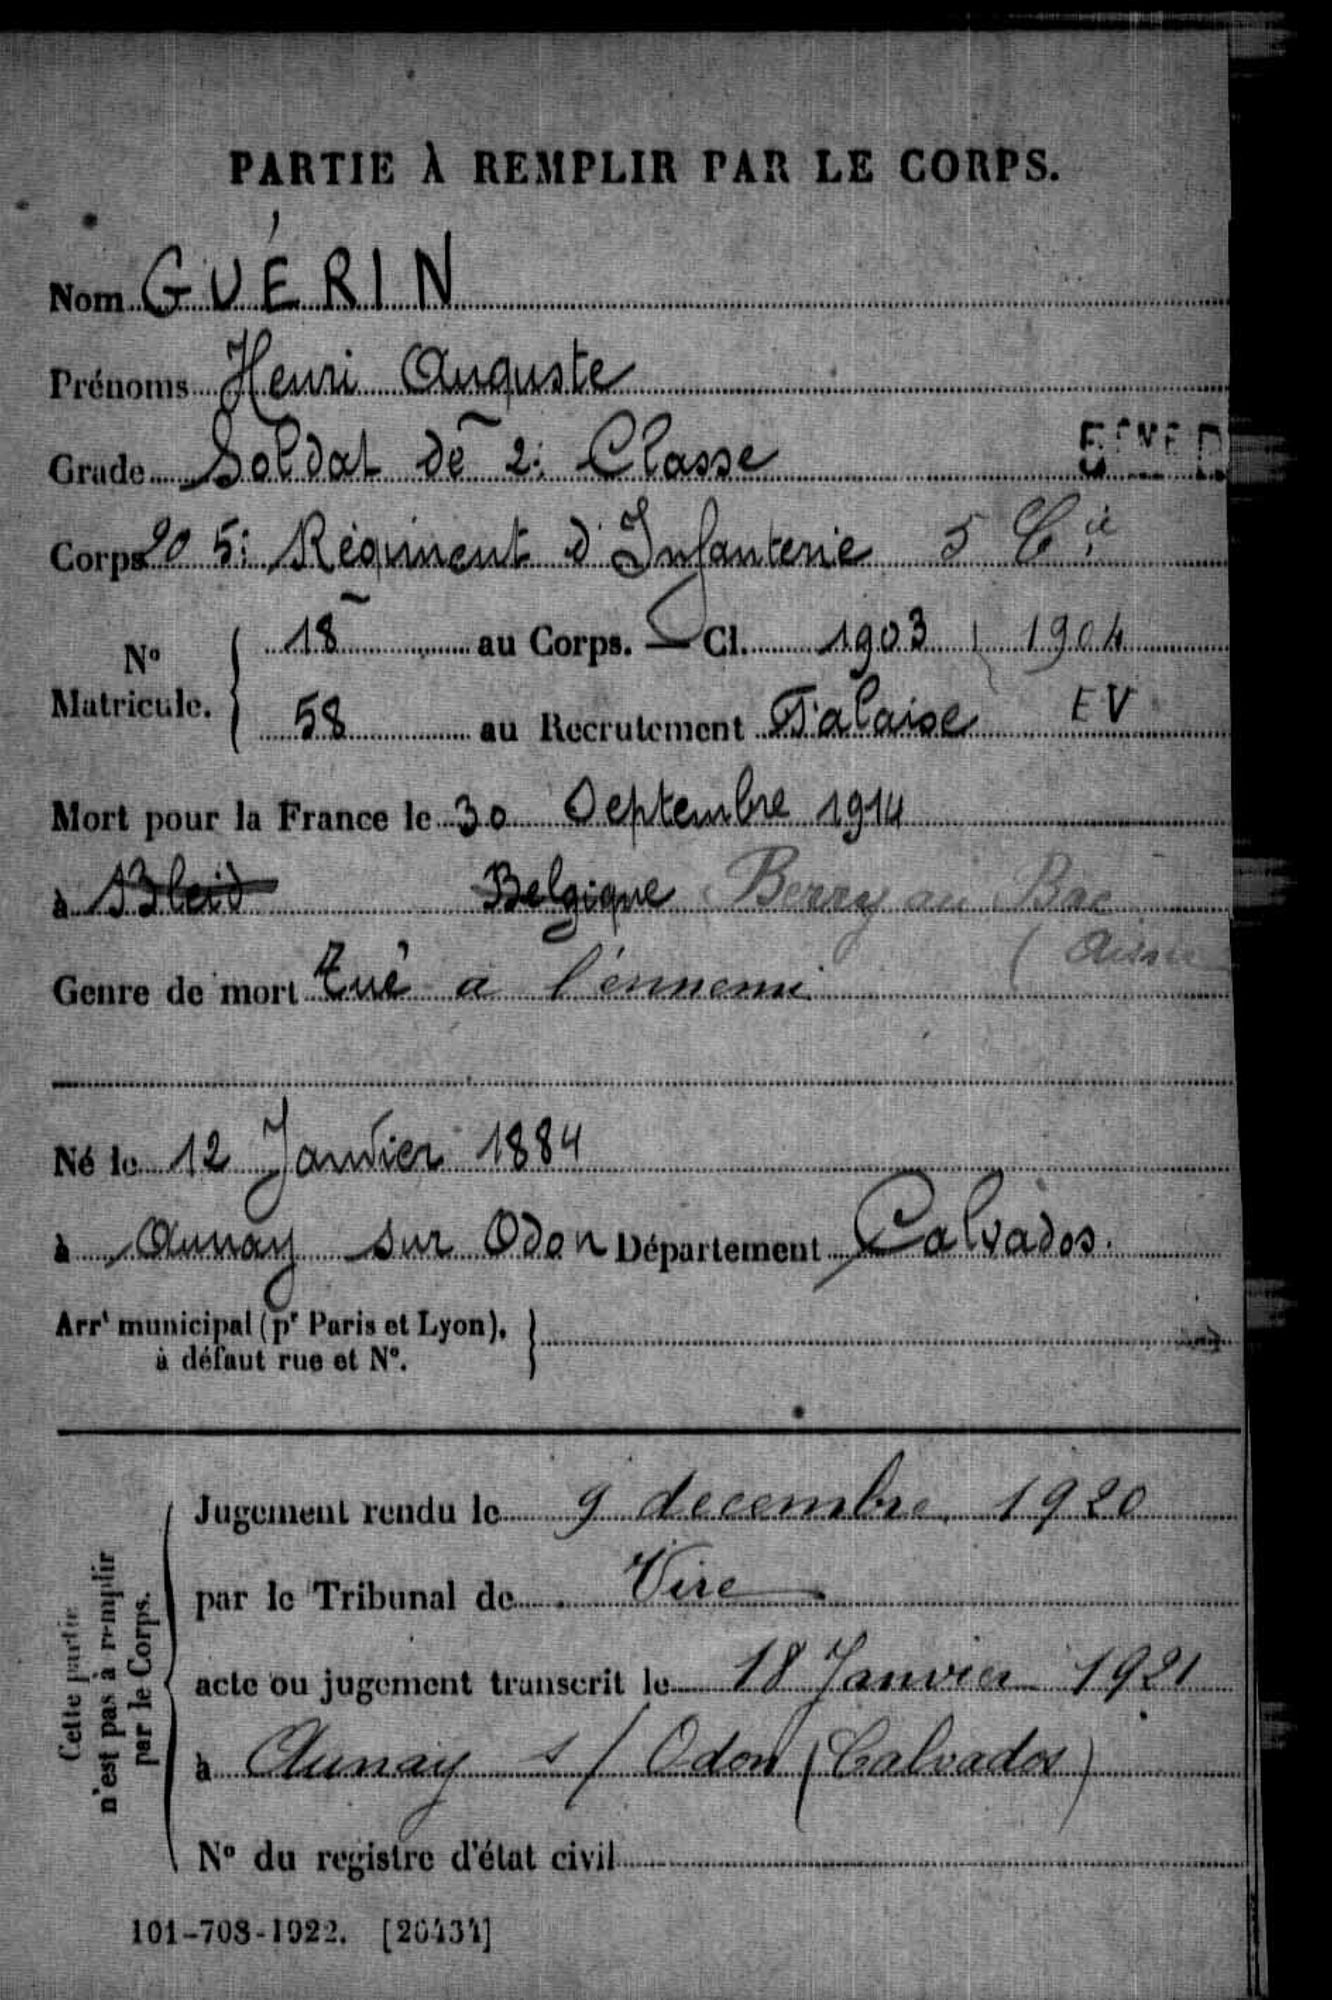 PARTIE À REMPLIR PAR LE CORPS.
Nom GUÉRIN
Prénoms Henri Auguste
Grade Soldat de 2e Classe
Corps 205e Régiment d'Infanterie 5 Cie
No Matricule. 18 au Corps. — Cl. 1903 1904
58 au Recrutement Falaise EV
Mort pour la France le 30 Septembre 1914
à Bleid Belgique Berry au Bac
(Aisne
Genre de mort Tué a l'énnemi
Né le 12 Janvier 1884
à Aunay sur Odon Département Calvados.
Arrt municipal (pr Paris et Lyon),
à défaut rue et No.
Cette partie
n'est pas à remplir
par le Corps.
Jugement rendu le 9 decembre 1920
par le Tribunal de Vire
acte ou jugement transcrit le 18 Janvier 1921
à Aunay s/ Odon (Calvados)
No du registre d'état civil
101-708-1922. [26434]